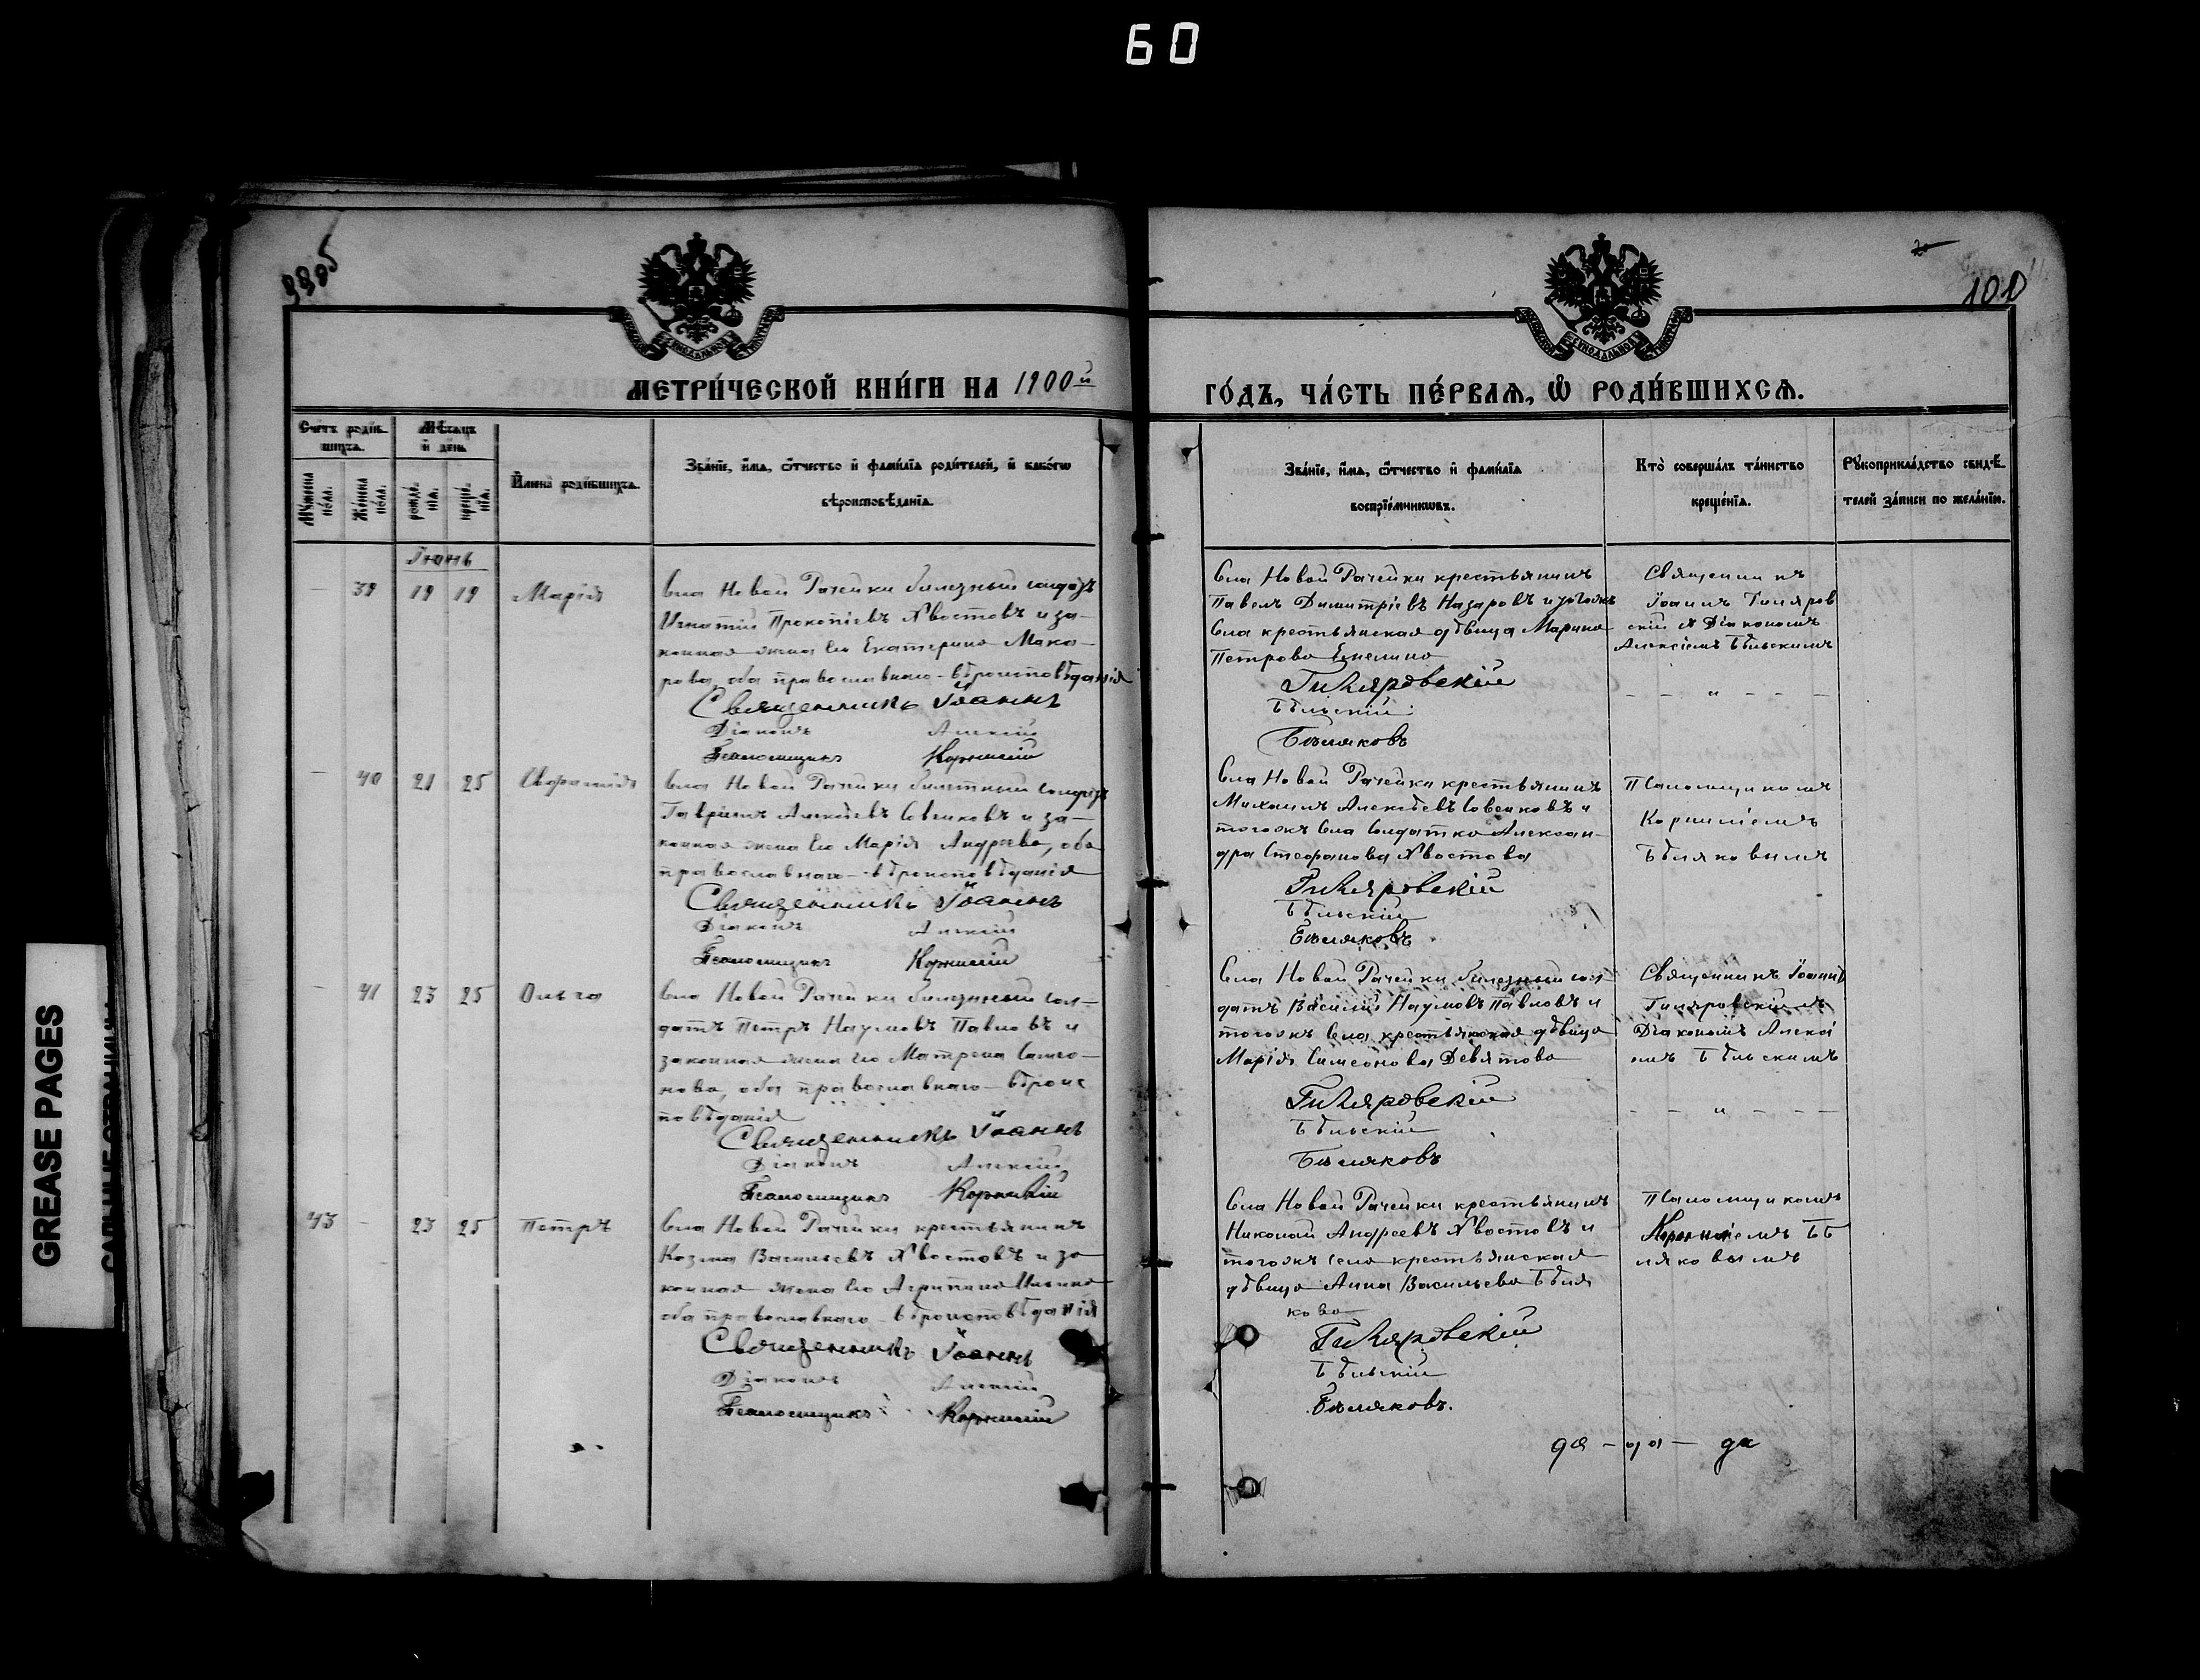 60
101
МЕТРИ́ЧЕСКОЙ КНИ́ГИ НА 1900й
ГО́ДЪ, ЧА́СТЬ ПЕ́РВАѦ, Ѡ҆ РОДИ́ВШИХСѦ.
Сче́тъ роди́вшихсѧ.
Мѣ́сѧцъ и҆ де́нь
И҆мена̀ роди́вшихсѧ.
Зва́нїе, и҆́мѧ, ѻ҆́тчество и҆ фами́лїѧ роди́телей, и҆ како́гѡ
вѣроисповѣ́данїѧ.
Му́жеска по́ла.
Же́нска по́ла.
рожде́нїѧ.
креще́нїѧ.
Зва́нїе, и҆́мѧ, ѻ҆́тчество и҆ фами́лїѧ
воспрїе́мниковъ.
Кто̀ соверша́лъ та́инство
креще́нїѧ.
Рꙋкоприкла́дство свидѣ́
телей за́писи по жела́нїю.
Іюнь
– 39 19 19 Марія
Села Новой Рачейки билезный солдатъ
Игнатій Прокопіевъ Хвостовъ и за–
конная жена его Екатерина Мака–
рова, оба православнаго–вѣроисповѣданія
Священникъ Іоаннъ
Діаконъ Алексій
Псаломщикъ Корнилій
Села Новой Рачейки крестьянинъ
Павелъ Димитріевъ Назаровъ и тогожъ
Села крестьянская дѣвица Марина
Петрова Емелина
Гиляровскій
Бѣльскій
Бѣляковъ
Священникъ
Іоаннъ Гиляров
скій и Діакономъ
Алексіемъ Бѣльскимъ
– – " – – –
– 40 21 25
Села Новой Рачейки билетный солдатъ
Гавріилъ Алексѣевъ Совенковъ и за–
конная жена его Марія Андреева, оба
православнаго–вѣроисповѣданія
Священникъ Іоаннъ
Діаконъ Алексій
Псаломщикъ Корнилій
Села Новой Рачейки крестьянинъ
Михаилъ Алексѣевъ Совенковъ и
тогожъ Села Солдатка Алексан–
дра Стефанова Хвостова
Гиляровскій
Бѣльскій
Бѣляковъ
Псаломщикомъ
Корниліемъ
Бѣляковымъ
– 41 23 25 Ольга
Села Новой Рачейки билезный сол–
датъ Петръ Наумовъ Павловъ и
законная жена его Матрона
нова, оба православнаго–вѣроис
повѣданія
Священникъ Іоаннъ
Діаконъ Алексій
Псаломщикъ Корнилій
Села Новой Рачейки билезный сол–
датъ Василій Наумовъ Павловъ и
тогожъ Села крестьянская дѣвица
Марія Симеонова Девятова
Гиляровскій
Бѣльскій
Бѣляковъ
Священникъ Іоаннъ
Гиляровскій съ
Діакономъ Алексі
емъ Бѣльскимъ
– – " – – –
43 – 23 25 Петръ
Села Новой Рачейки крестьянинъ
Козма Васильевъ Хвостовъ и за
конная жена его Агрипина Ильина
оба православнаго–вѣроисповѣданія
Священникъ Іоаннъ
Діаконъ Алексій
Псаломщикъ Корнилій
Села Новой Рачейки крестьянинъ
Николай Андреевъ Хвостовъ и
тогожъ села крестьянская
дѣвица Анна Васильева Бѣля
кова
Гиляровскій
Бѣльскій
Бѣляковъ.
Псаломщикомъ
Корниліемъ Бѣ
ляковымъ
GREASE PAGES